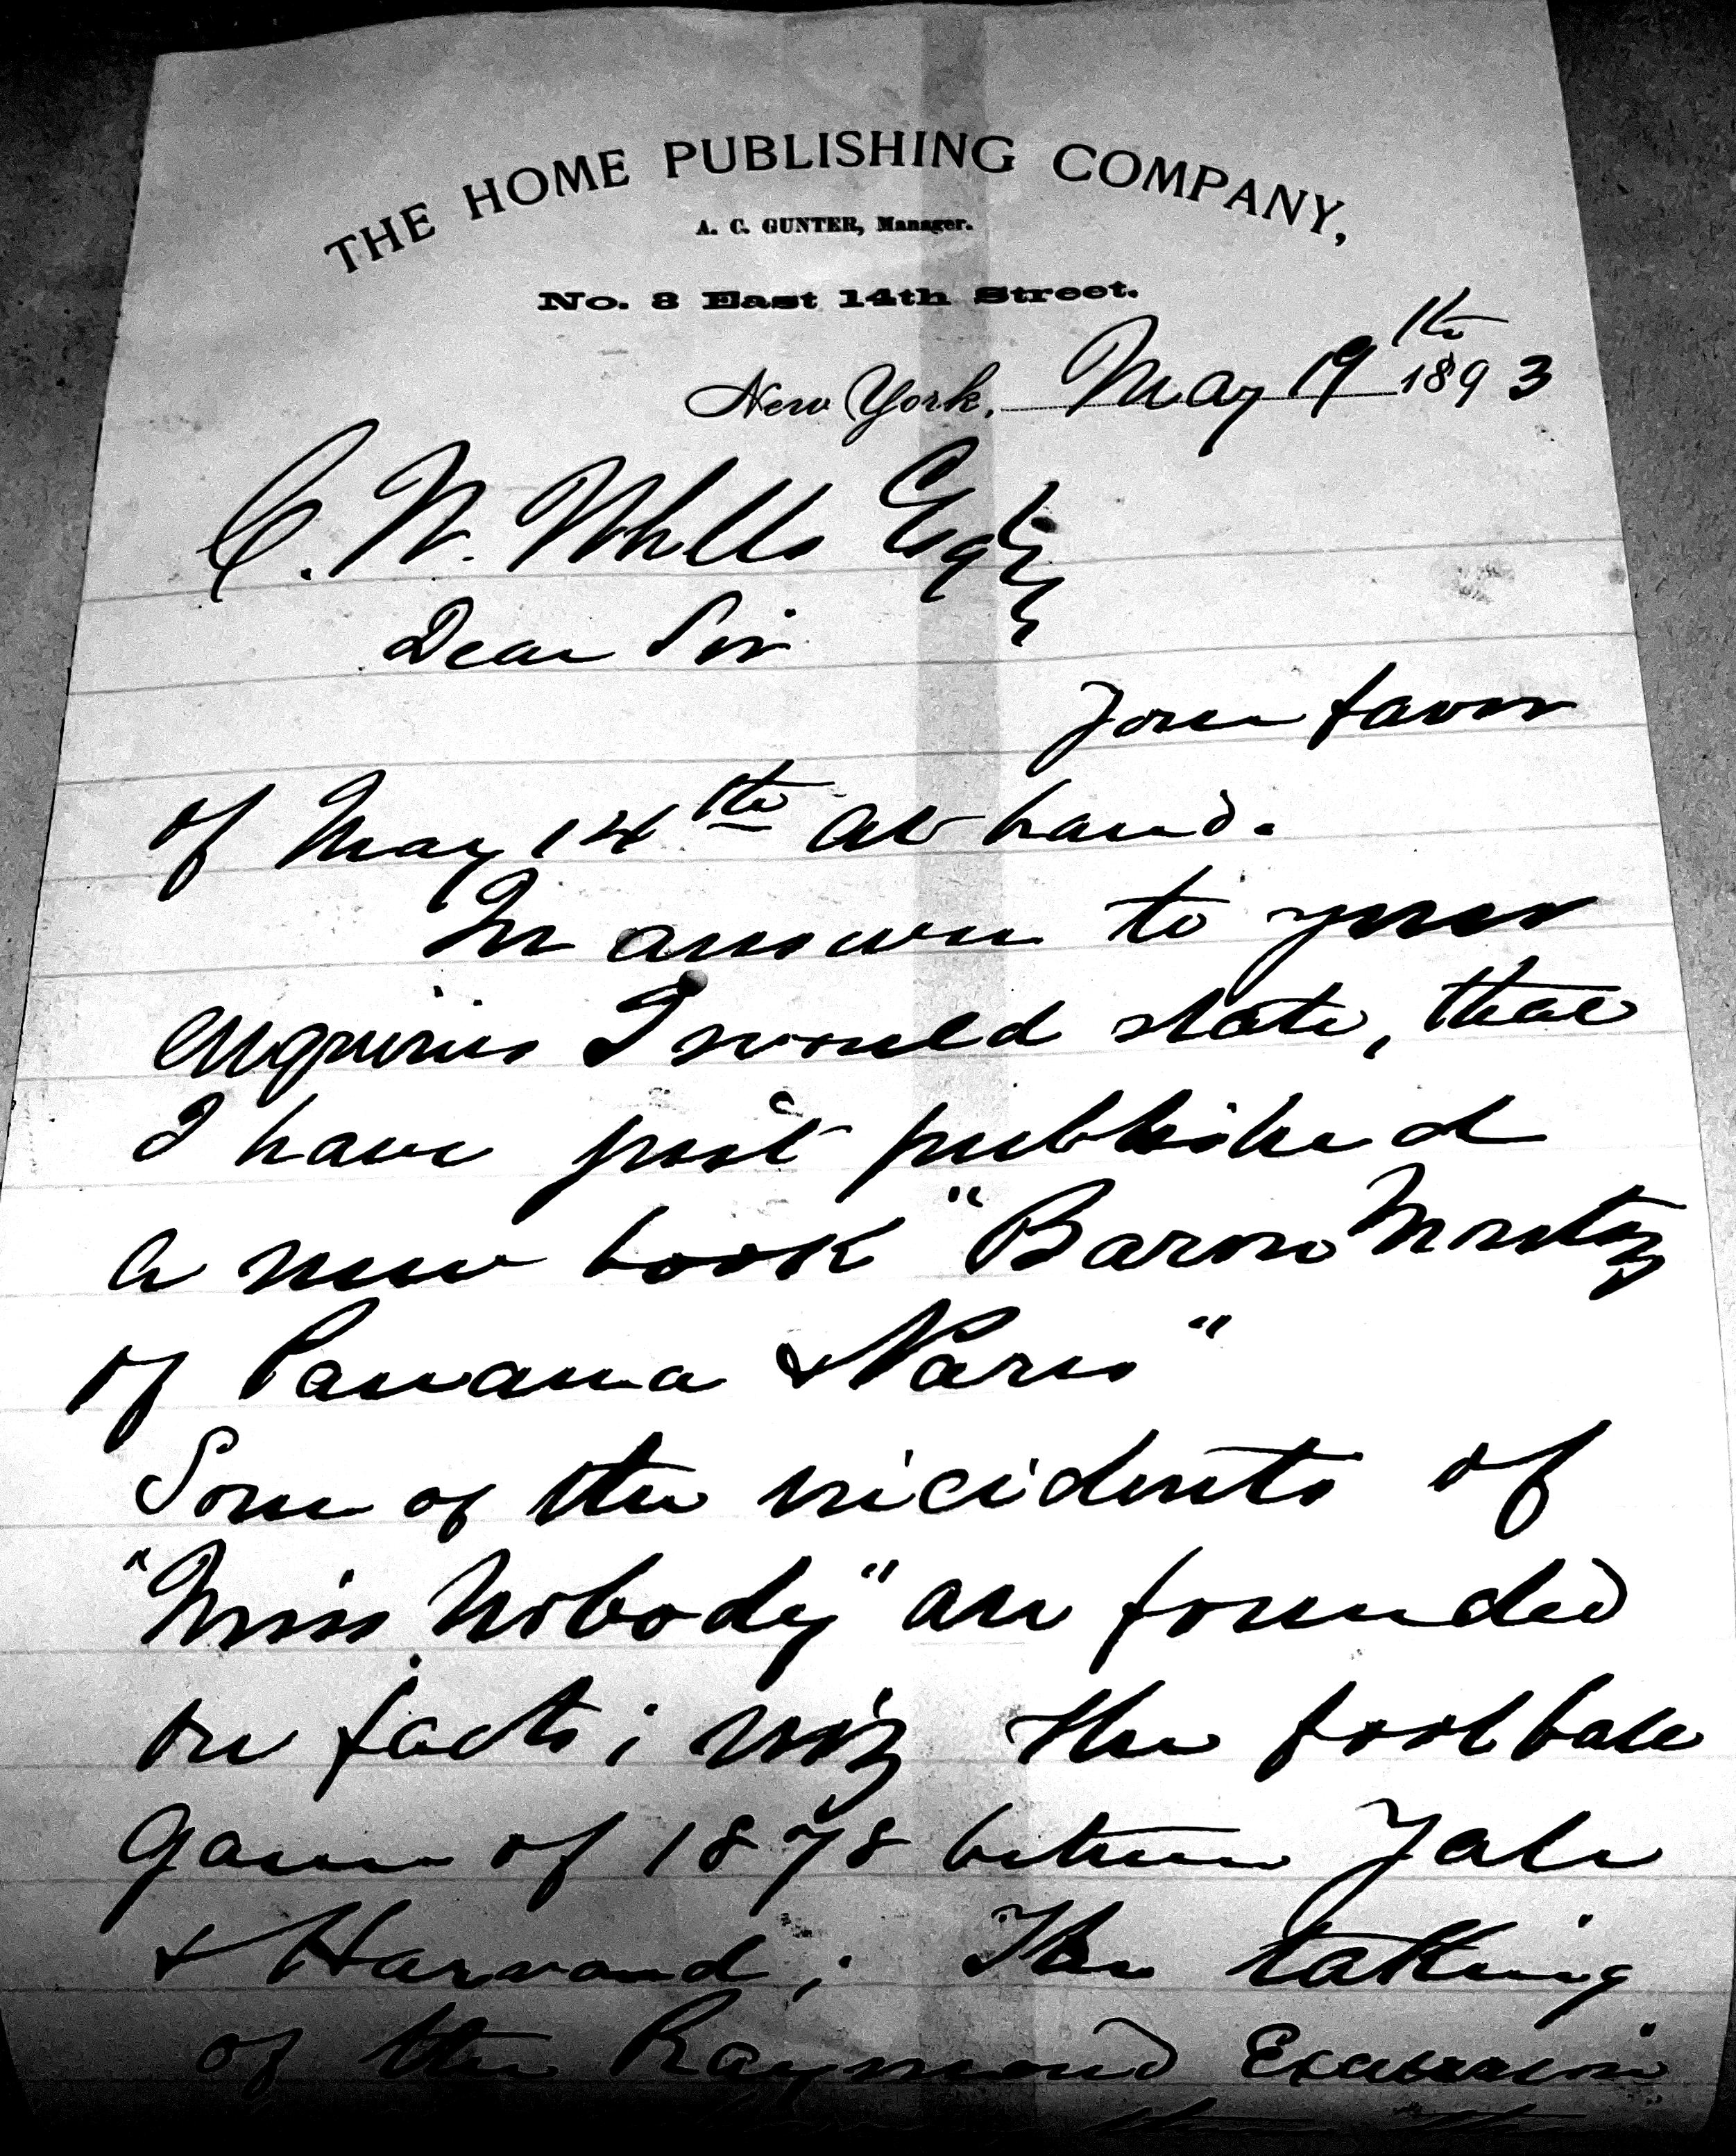 THE HOME PUBLISHING COMPANY,
A. C. GUNTER, Manager.
No. 3 East 14th Street.
New York, May 19th 1893
C. W. Esq
Dear Sir
Your favor
of May 14th at hand.
In answer to your
enquiries I would state, that
I have just published
a new book "Baron Montez
of Panama & Paris"
Some of the incidents of
"Miss Nobody" are founded
on facts; viz the foot ball
game of 1878 between Yale
& Harvard; The taking
of the Raymond Excursion